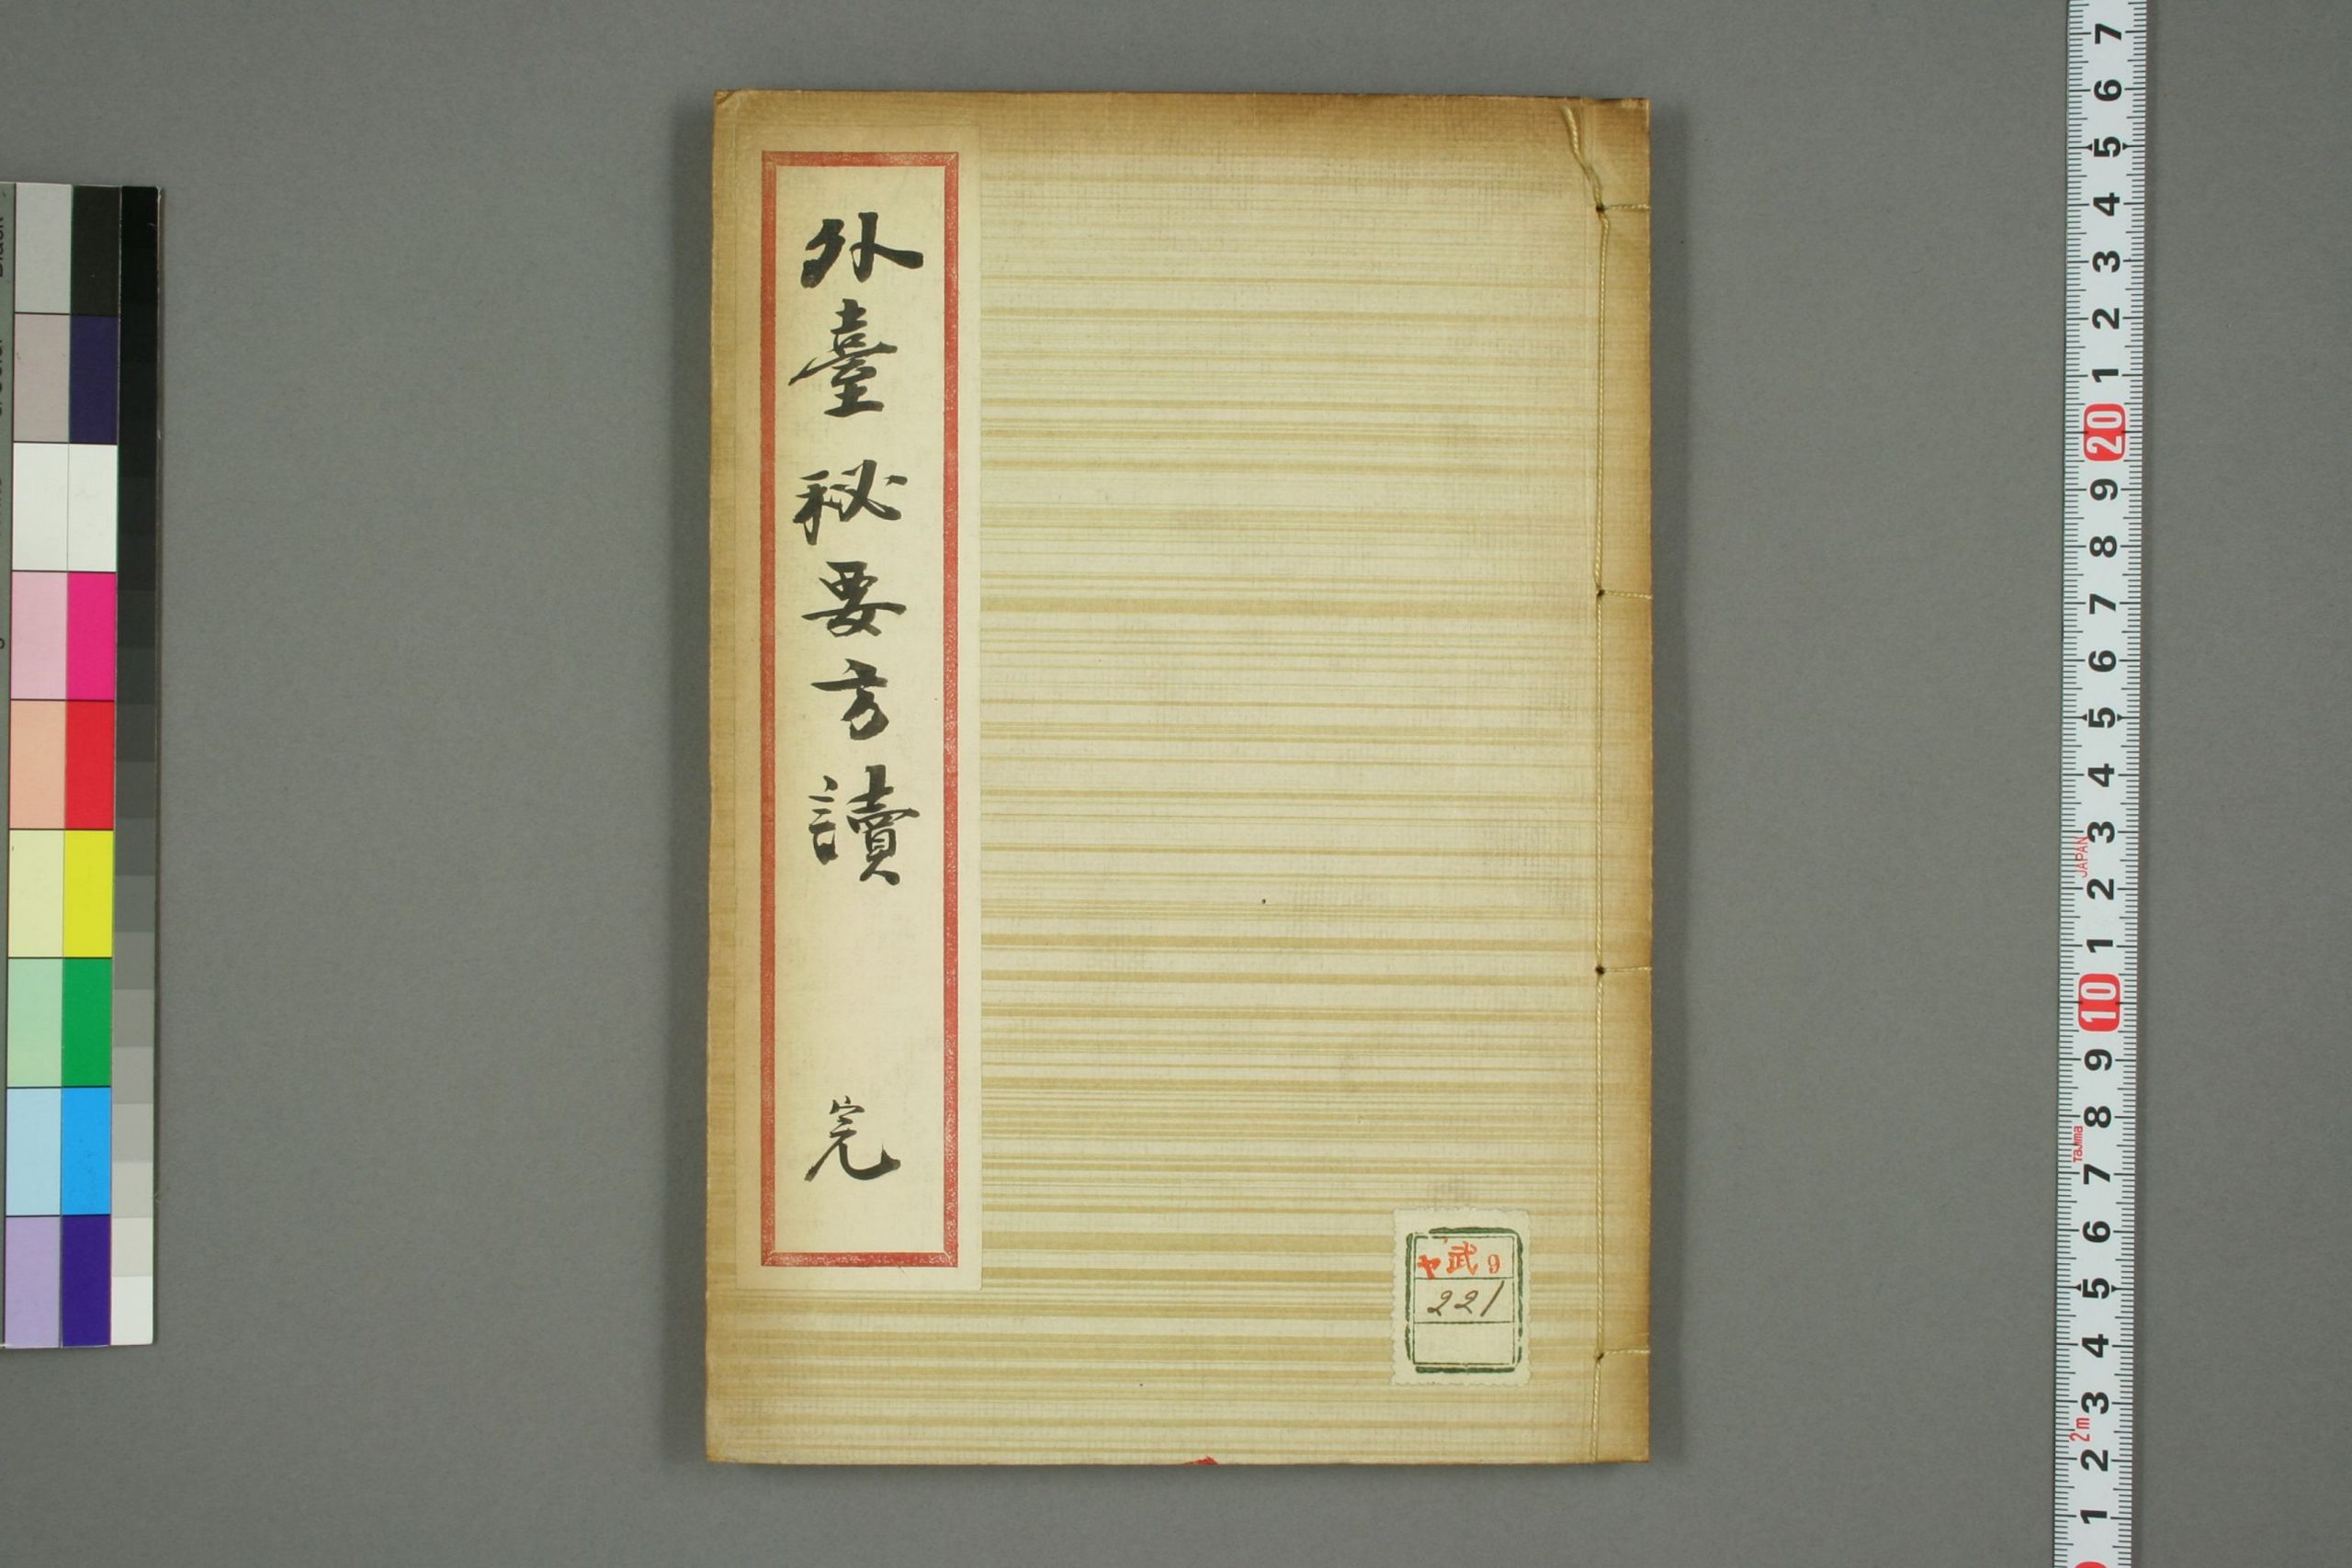 外臺秘要方讀
完
ヤ武9
221
7
6
5
4
3
2
1
20
9
8
7
6
5
4
3
JAPAN
2
1
10
9
8
Tajima
7
6
5
4
3
2m
2
1